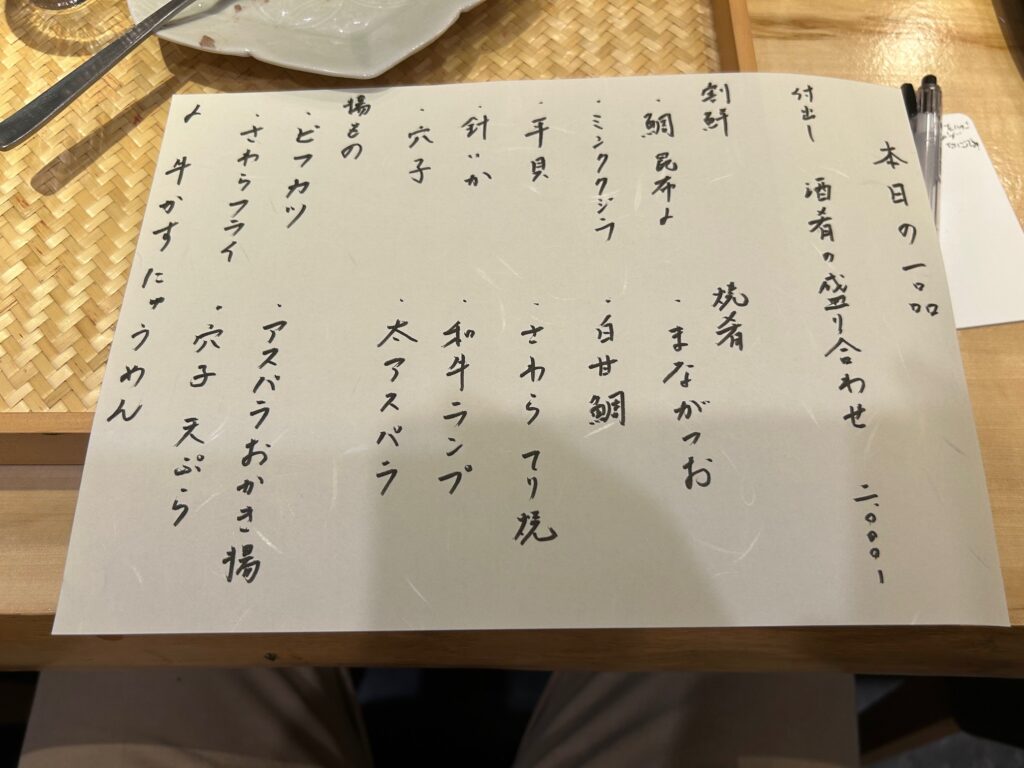 本日の一品
付出し 酒肴の盛り合わせ 二,〇〇〇ー
割鮮
・鯛昆布〆
・ミンククジラ
・平貝
・針いか
・穴子
焼肴
・まながつお
・白甘鯛
・さわら てり焼
・和牛ランプ
・太アスパラ
揚もの
・ビフカツ
・さわらフライ
・アスパラおかき揚
・穴子 天ぷら
〆 牛かすにゅうめん